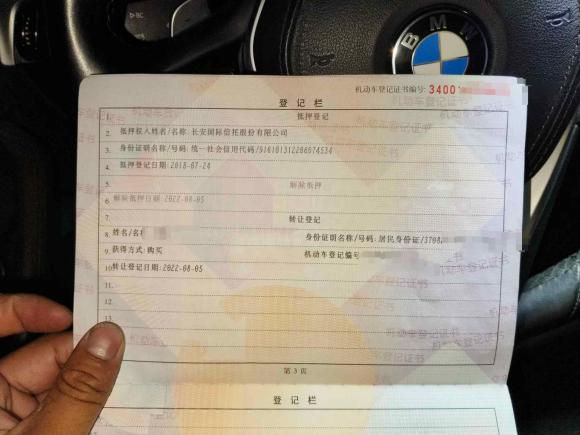 BMW
机动车登记证书编号: 3400
登记栏
1. 抵押登记
2. 抵押权人姓名/名称:长安国际信托股份有限公司
3. 身份证明名称/号码:统一社会信用代码/916101312206074534
4. 抵押登记日期:2018-07-24
5. 解除抵押
6. 解除抵押日期:2022-08-05
7. 转让登记
8. 姓名/名 身份证明名称/号码:居民身份证/3708
9. 获得方式:购买 机动车登记编号
10. 转让登记日期:2022-08-05
11.
12.
13.
第3页
登记栏